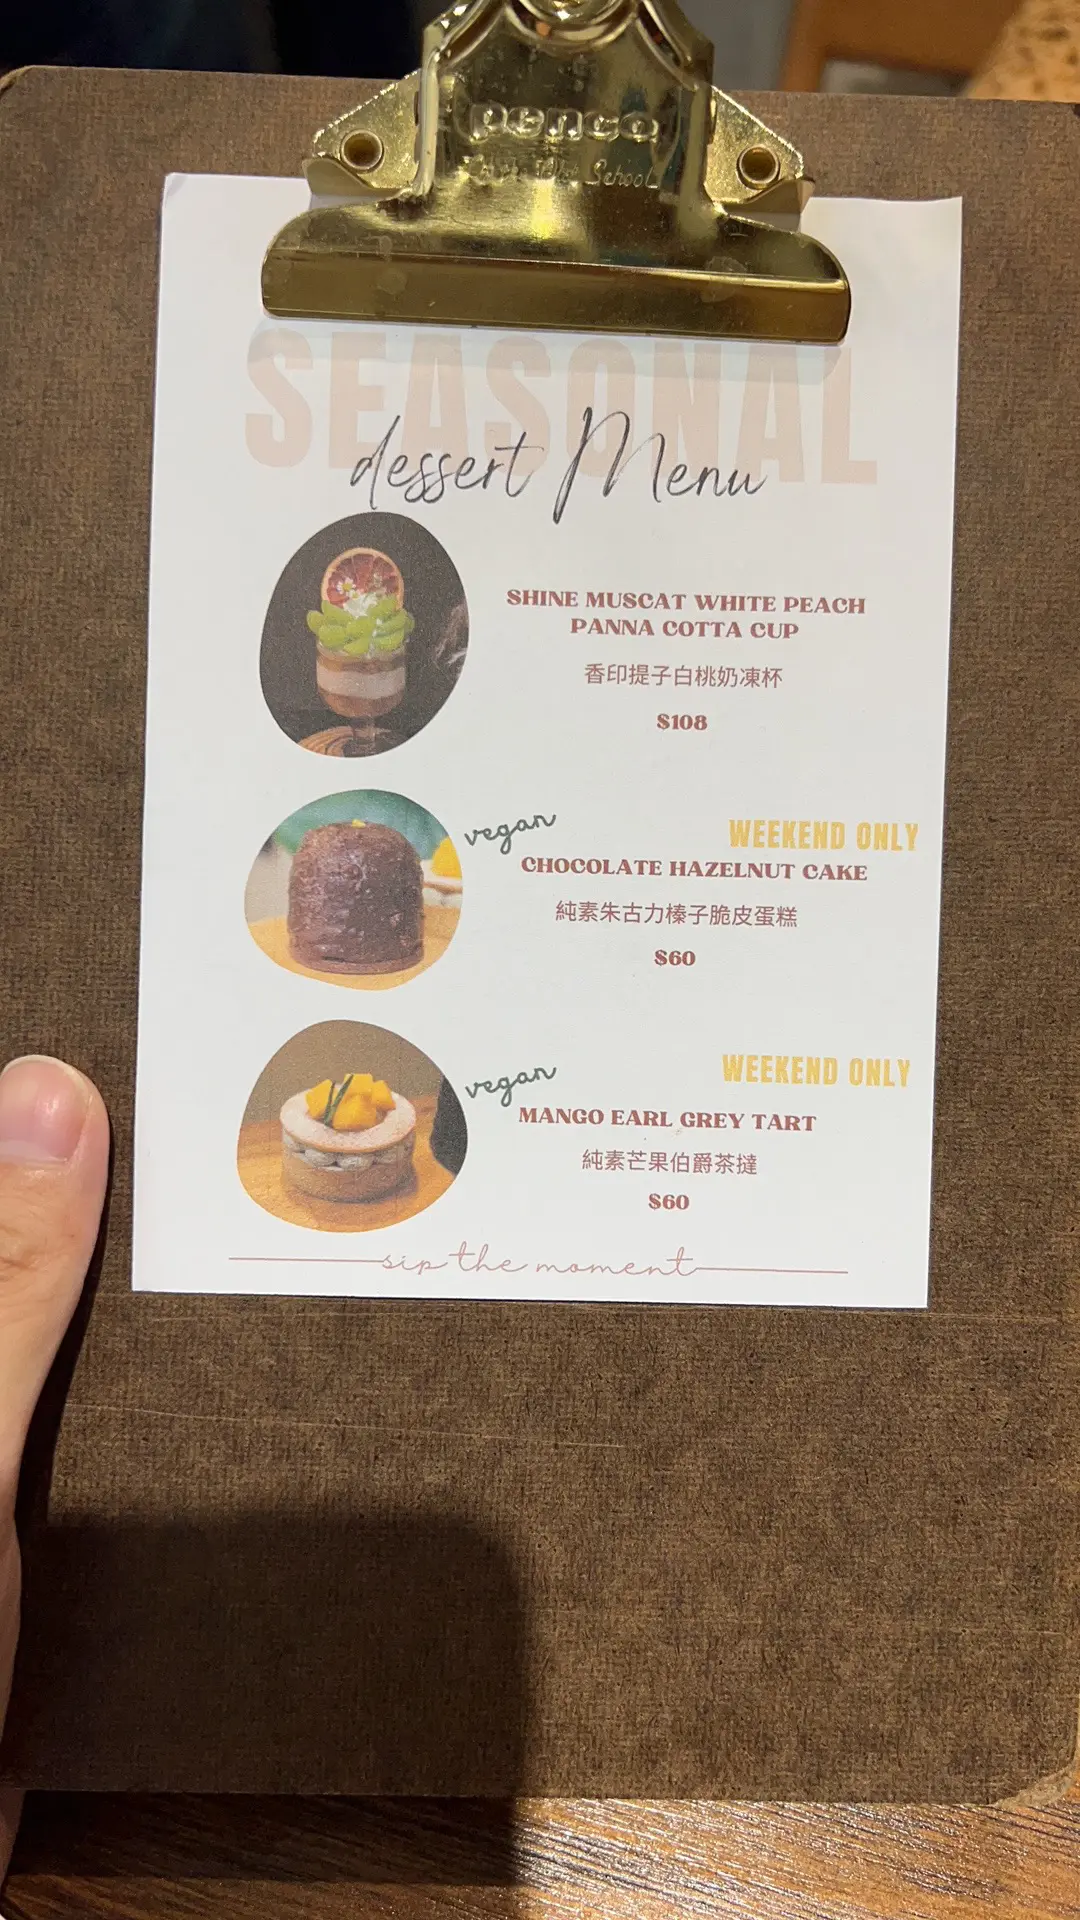 penco
School
SEASONAL
dessert Menu
SHINE MUSCAT WHITE PEACH
PANNA COTTA CUP
香印提子白桃奶凍杯
$108
vegan
WEEKEND ONLY
CHOCOLATE HAZELNUT CAKE
純素朱古力榛子脆皮蛋糕
$60
vegan
WEEKEND ONLY
MANGO EARL GREY TART
純素芒果伯爵茶撻
$60
sip the moment